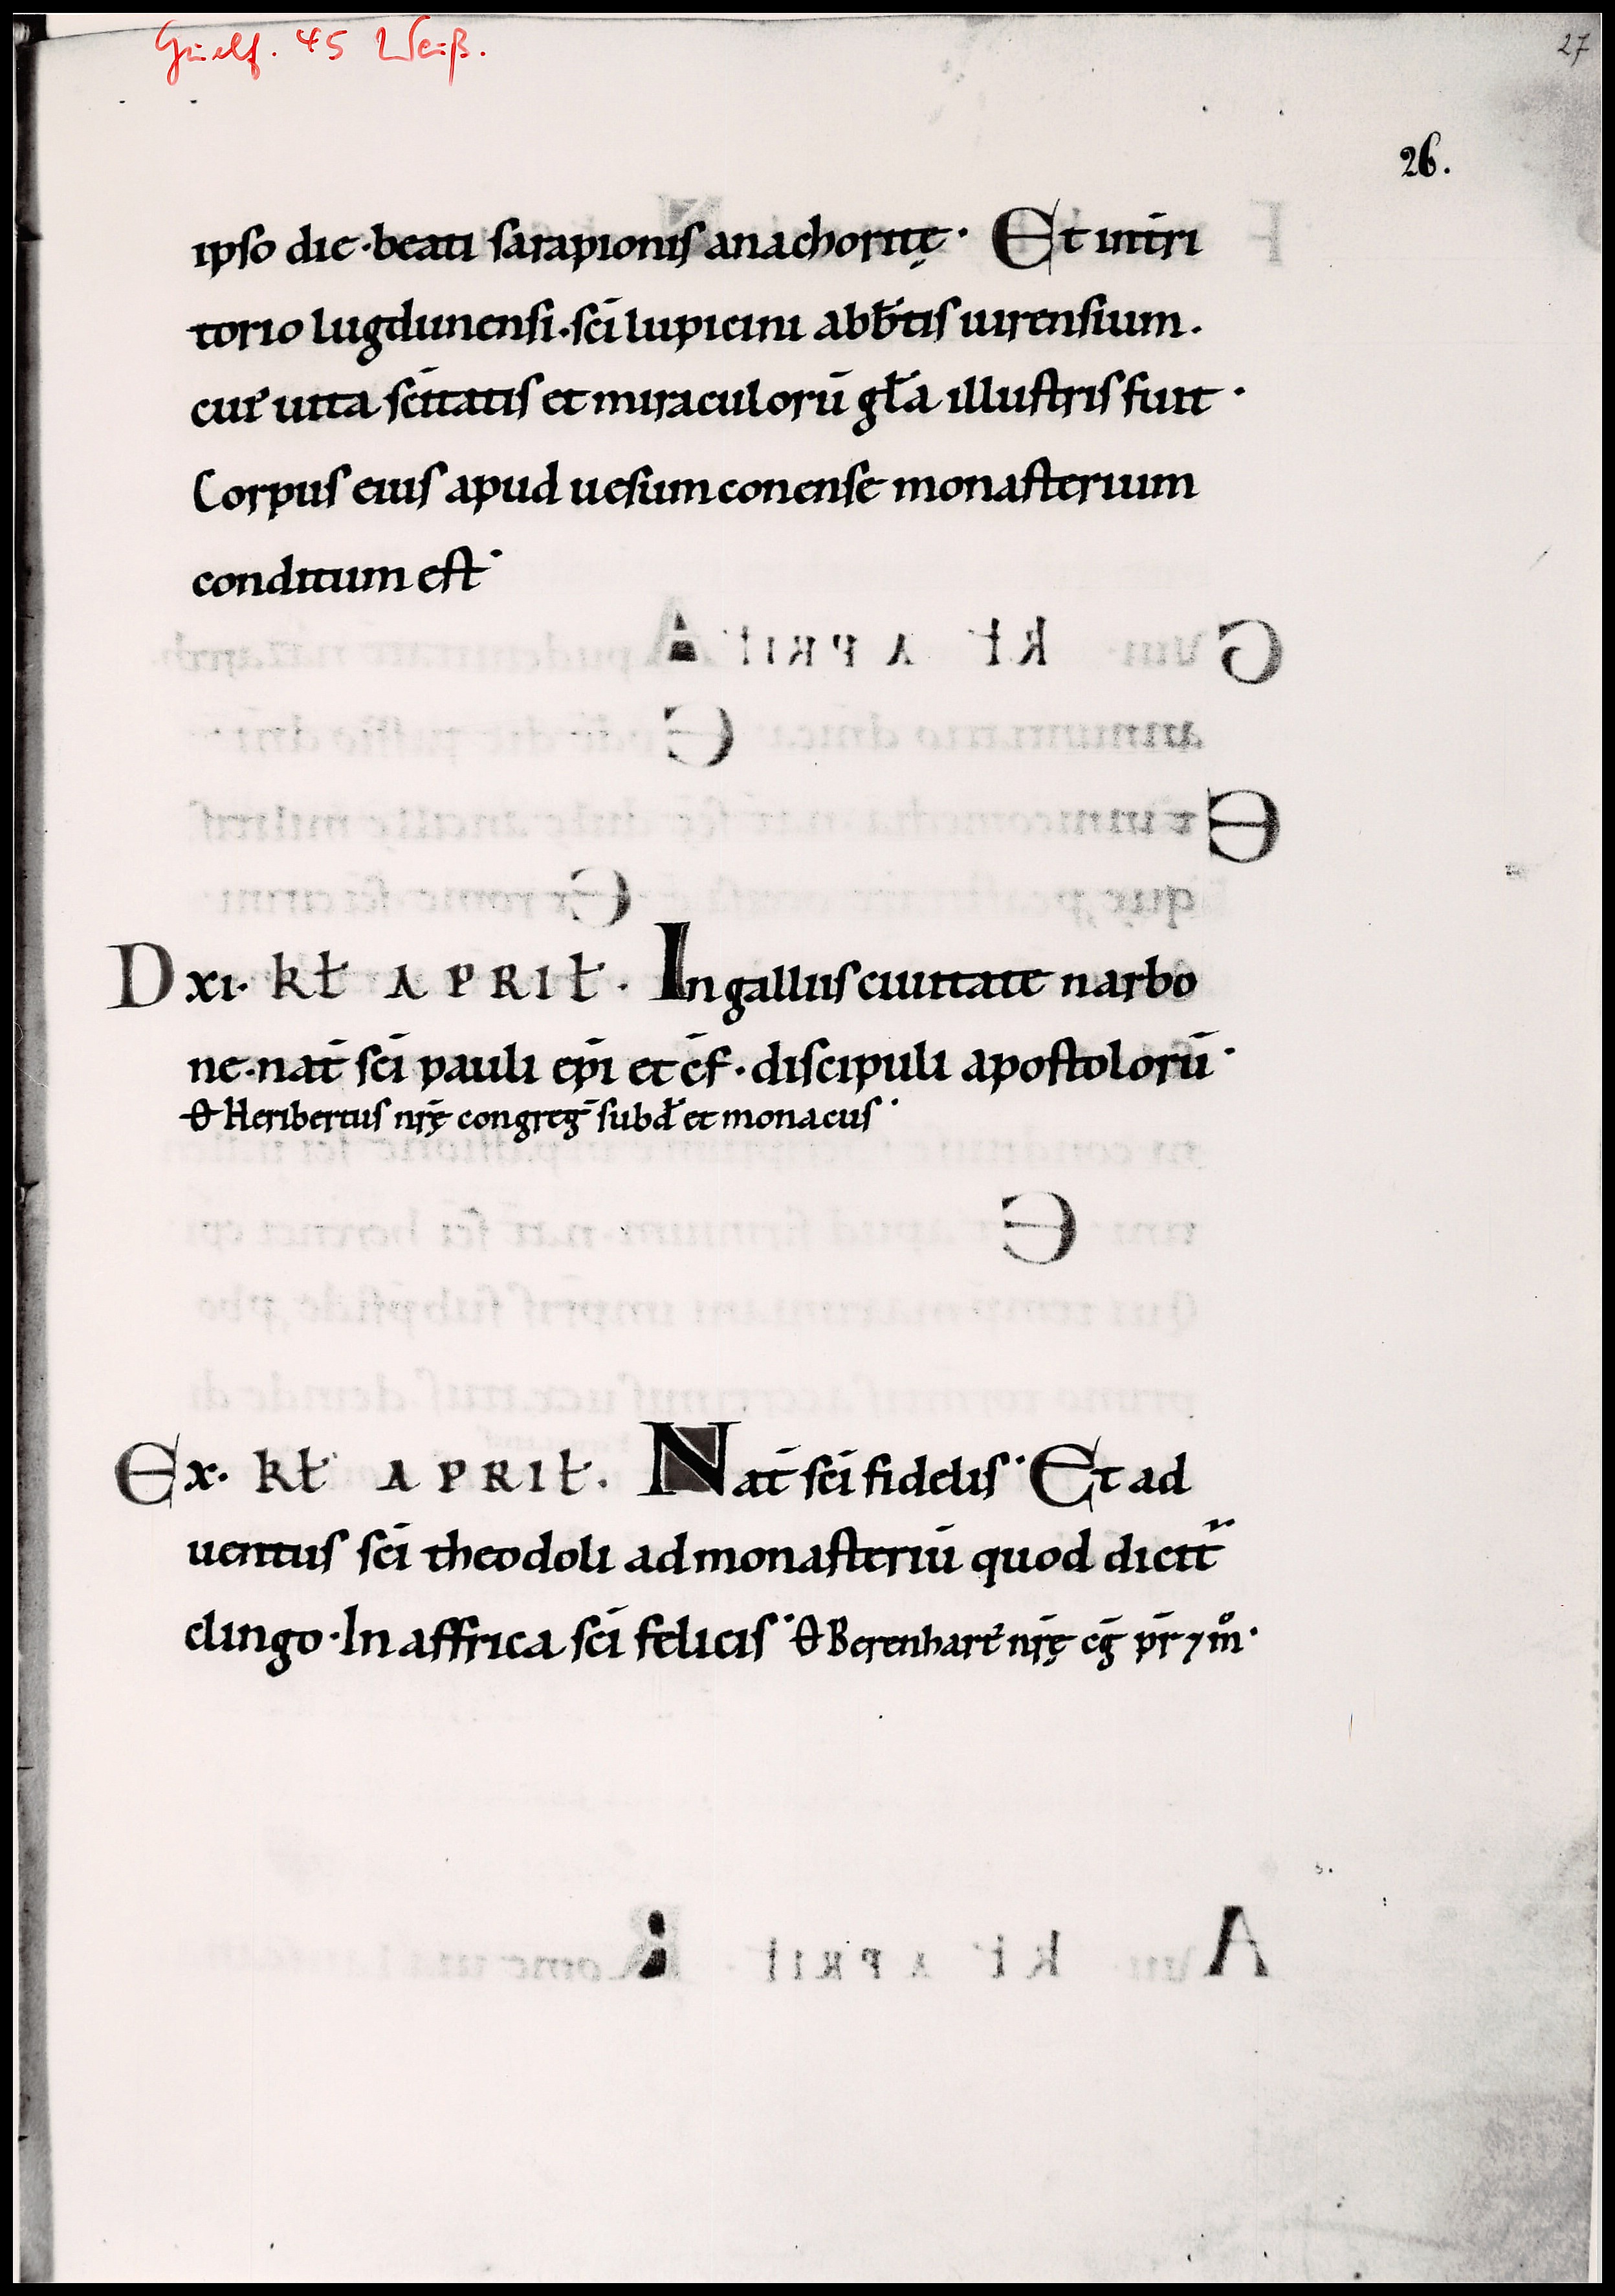 Guelf. 45 Weiß.
27
26.
ipso die · beati sarapionis anachoritę · Et in t̄ri
torio lugdunensi · sc̄i lupicini abb̄tis uirensium.
cui᾽ uita sc̄itatis et miraculorū gl̄a illustris fuit ·
Corpus eius apud uesumconense monasterium
conditum est ·
D xi · kł APRIł · In galliis ciuitate narbo
ne · nat̄ sc̄i pauli ep̄i et c̄f · discipuli apostolorū ·
Θ Heribertus nr̄ę congreḡ subd̄ et monacus ·
E x · kł APRIł · Nat̄ sc̄i fidelis · Et ad
uentus sc̄i theodoli ad monasteriū quod dicit̄
clingo · In affrica sc̄i felicis · Θ Berenhart᾽ nr̄ę cḡ pr̄ ⁊ m̊ ·